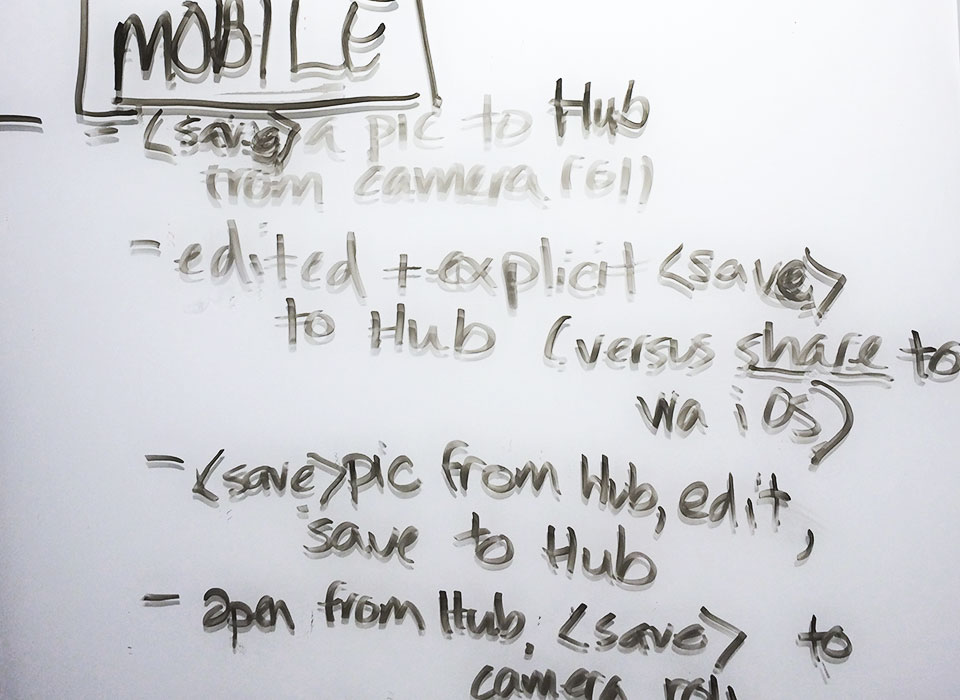 MOBILE
- <save> a pic to Hub
from camera roll)
- edited + explicit <save>
to Hub (versus share to
via iOS)
- <save> pic from Hub, edit,
save to Hub
- open from Hub, <save> to
camera roll